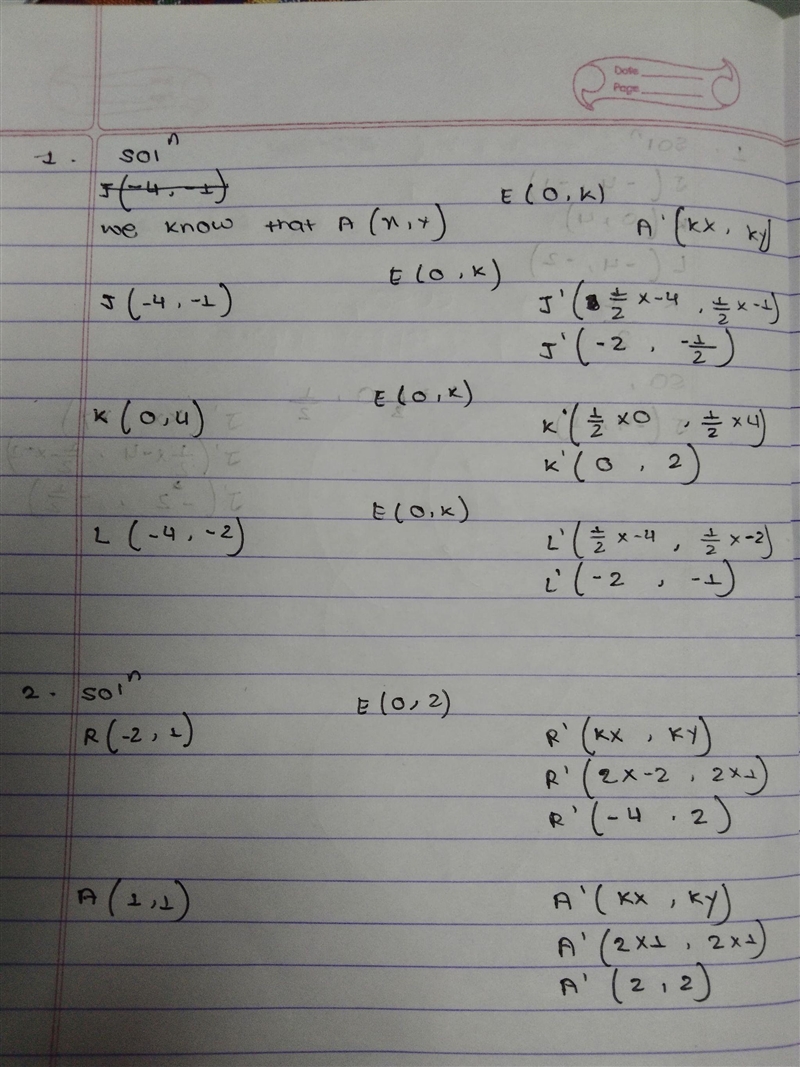 Date
Page
1. Solⁿ
J(-4, -1) E(0, K)
we know that A(x, y) A'(Kx, Ky)
E(0, K)
J(-4, -1) J'(1/2 × -4, 1/2 × -1)
J'(-2, -1/2)
E(0, K)
K(0, 4) K'(1/2 × 0, 1/2 × 4)
K'(0, 2)
E(0, K)
L(-4, -2) L'(1/2 × -4, 1/2 × -2)
L'(-2, -1)
2. Solⁿ
E(0, 2)
R(-2, 1) R'(Kx, Ky)
R'(2 × -2, 2 × 1)
R'(-4, 2)
A(1, 1) A'(Kx, Ky)
A'(2 × 1, 2 × 1)
A'(2, 2)